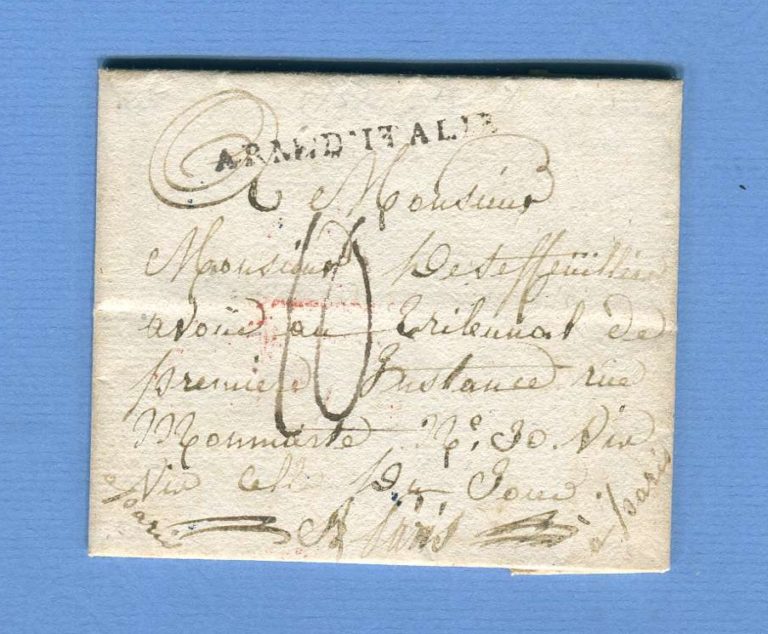 ARM D'ITALIE
A Monsieur
Monsieur
10
avoué au tribunal de
première Instance rue
N°. 30. Vis
Vis celle Du Jour
à paris
A paris
à paris